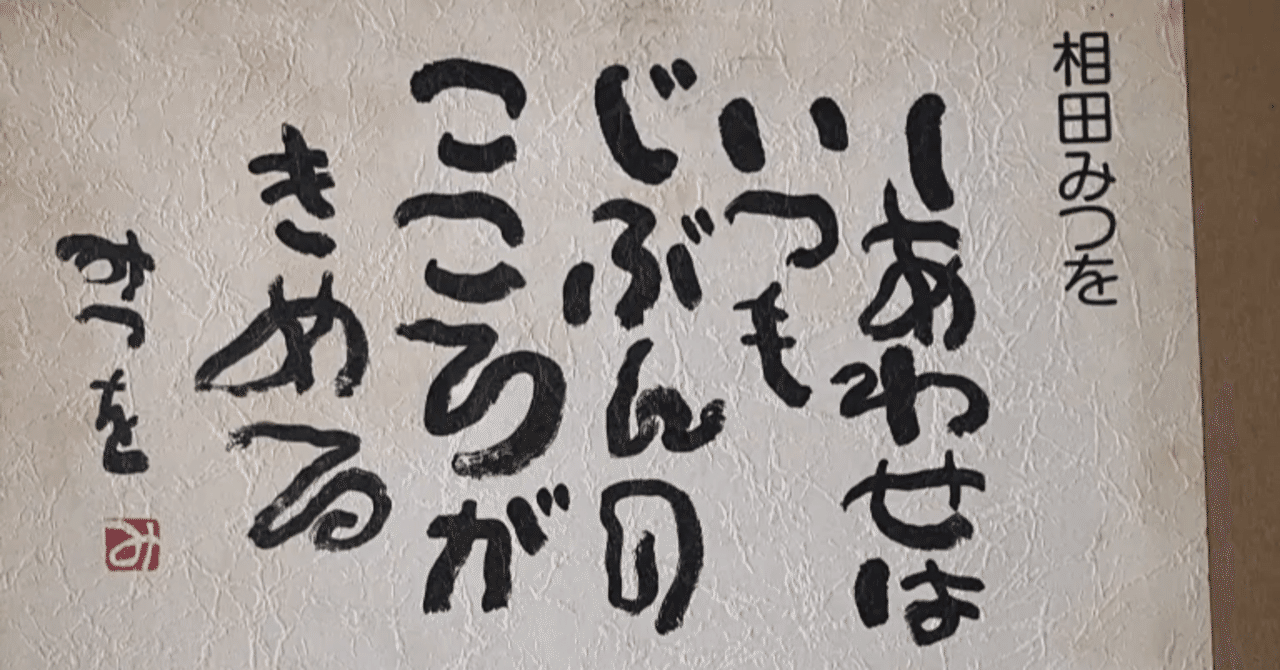 相田みつを
しあわせは
いつも
じぶんの
こころが
きめる
みつを